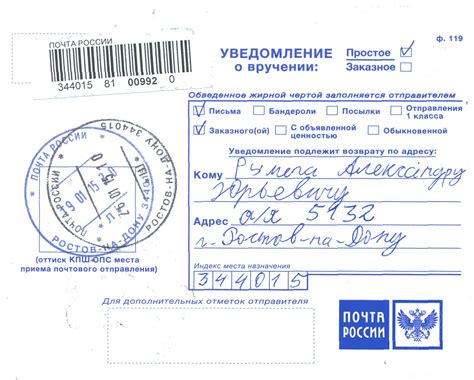 ПОЧТА РОССИИ
344015 81 00992 0
ф. 119
УВЕДОМЛЕНИЕ
о вручении:
Простое
Заказное
Обведенное жирной чертой заполняется отправителем
Письма Бандероли Посылки Отправления 1 класса
Заказного(ой) С объявленной ценностью Обыкновенной
Уведомление подлежит возврату по адресу:
Кому Александру
Юрьевичу
Адрес а/я 5132
г. Ростов-на-Дону
Индекс места назначения
344015
ПОЧТА РОССИИ
РОСТОВ-НА-ДОНУ 344015
(оттиск КПШ-ОПС места
приема почтового отправления)
Для дополнительных отметок отправителя
ПОЧТА
РОССИИ